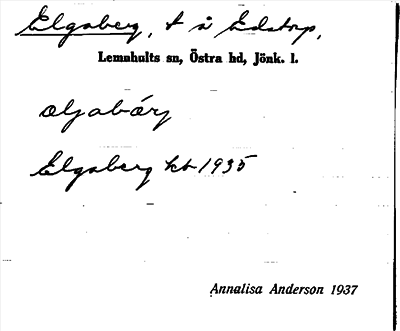 Elgaberg, t å Edstorp,
Lemnhults sn, Östra hd, Jönk. l.
æljabærj
Elgaberg kt 1935
Annalisa Anderson 1937